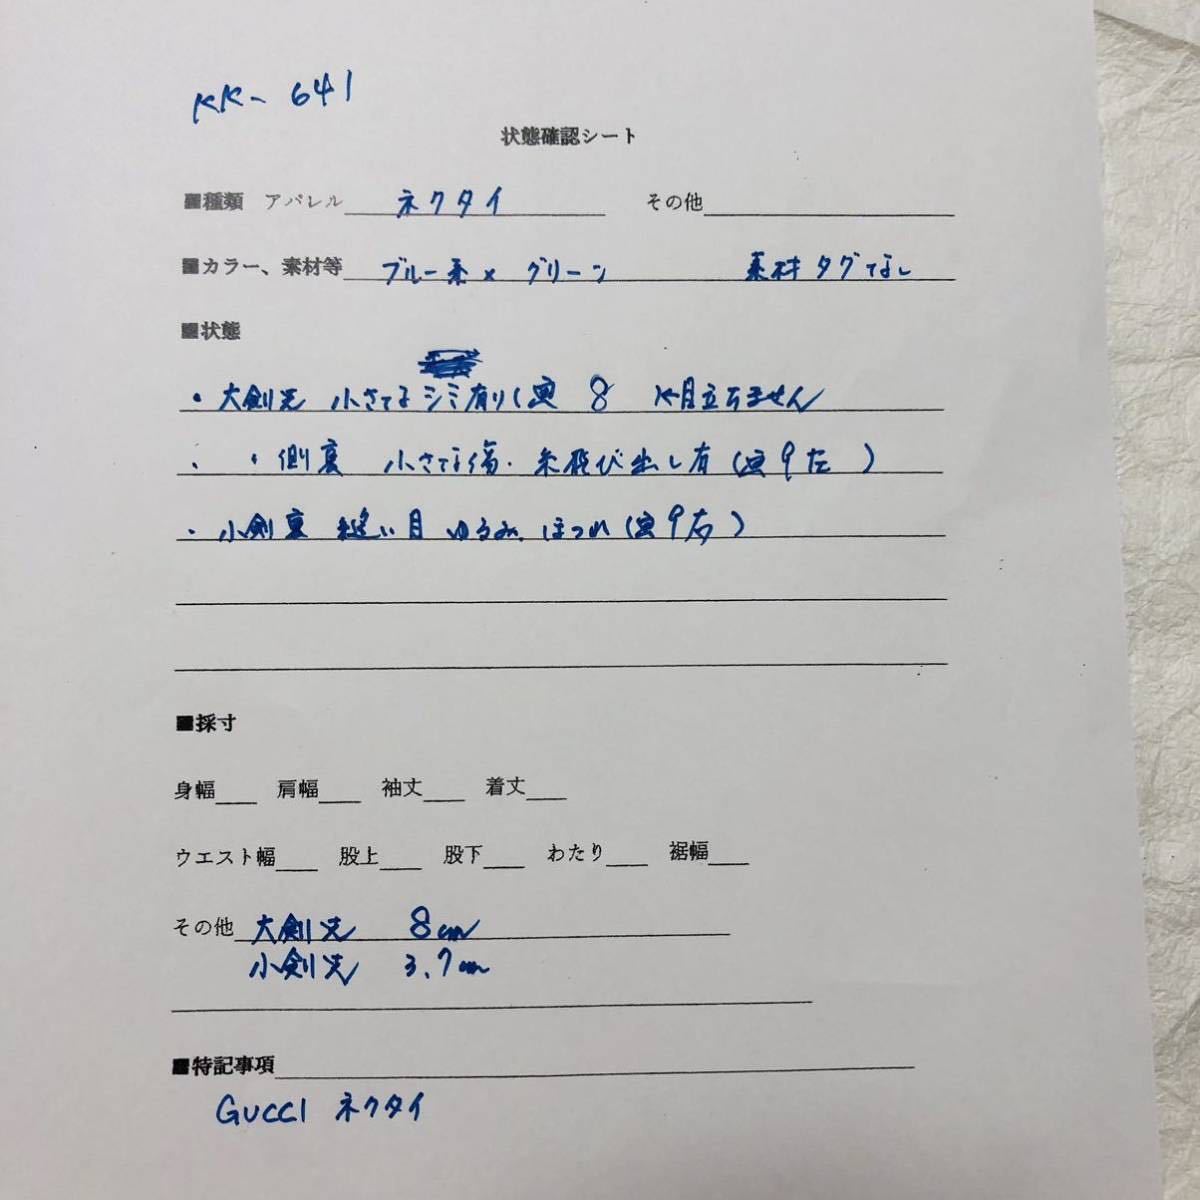 KK- 641
状態確認シート
■種類 アパレル ネクタイ その他
■カラー、素材等 ブルー系× グリーン 素材タグなし
■状態
・大剣先 小さなシミ有り( 8 目立ちません
・ ・側裏 小さな傷・糸飛び出し有( 9左 )
・小剣裏 縫い目 ゆるみ、ほつれ( 9右 )
■採寸
身幅 肩幅 袖丈 着丈
ウエスト幅 股上 股下 わたり 裾幅
その他 大剣先 8cm
小剣先 3.7cm
■特記事項
GUCCI ネクタイ